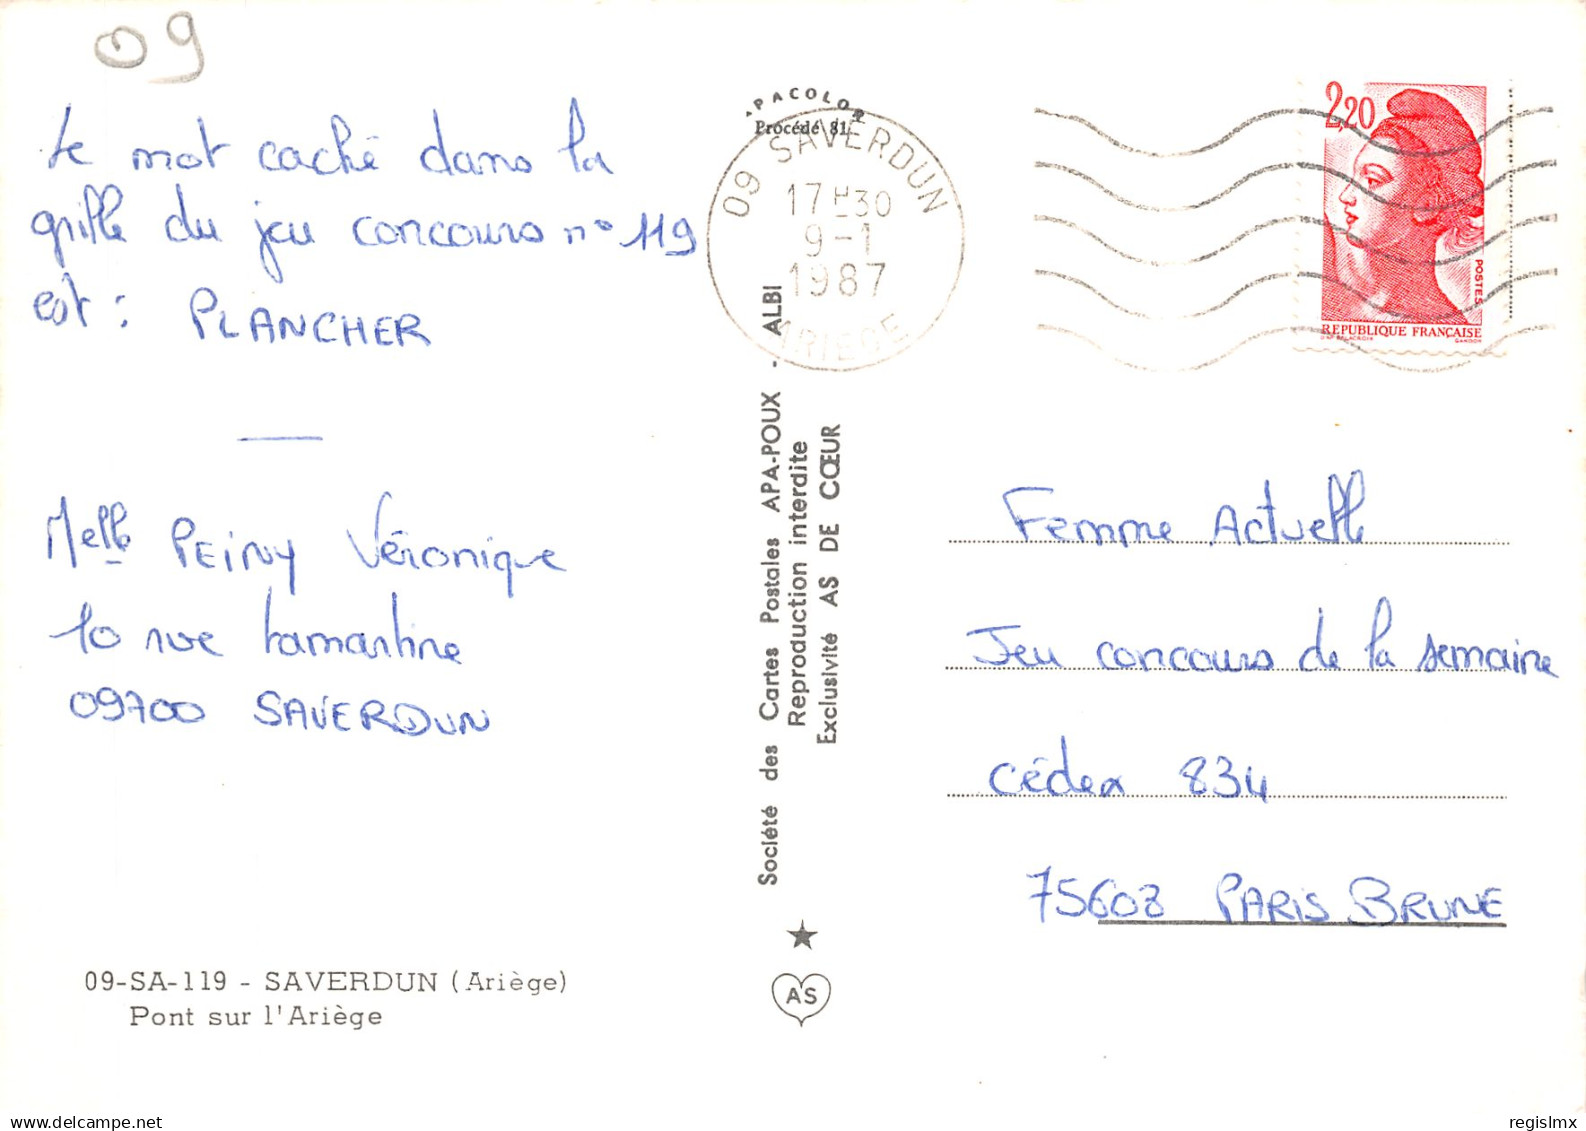 09
Le mot caché dans la
grille du jeu concours n° 119
est : PLANCHER
Melle PEINY Véronique
10 rue Lamartine
09700 SAVERDUN
09-SA-119 - SAVERDUN (Ariège)
Pont sur l'Ariège
APACOLOR
Procédé 81
09 SAVERDUN
17H30
9-1
1987
ARIEGE
Société des Cartes Postales APA-POUX - ALBI
Reproduction interdite
Exclusivité AS DE CŒUR
AS
2,20
POSTES
REPUBLIQUE FRANÇAISE
D'AP. DELACROIX GANDON
Femme Actuelle
Jeu concours de la semaine
Cédex 834
75603 PARIS BRUNE
regislmx